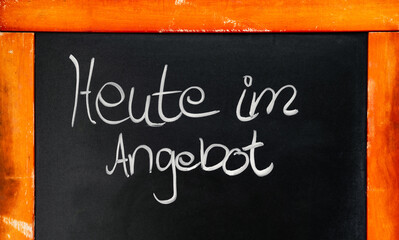 Heute im
Angebot